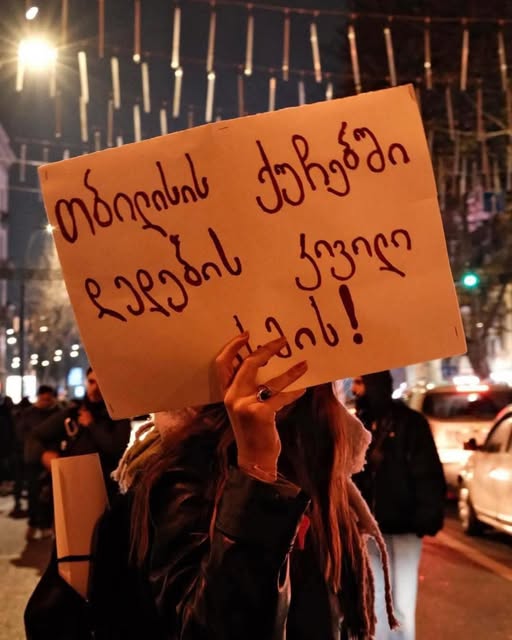 თბილისის ქუჩებში
დედების კივილი
ისმის!